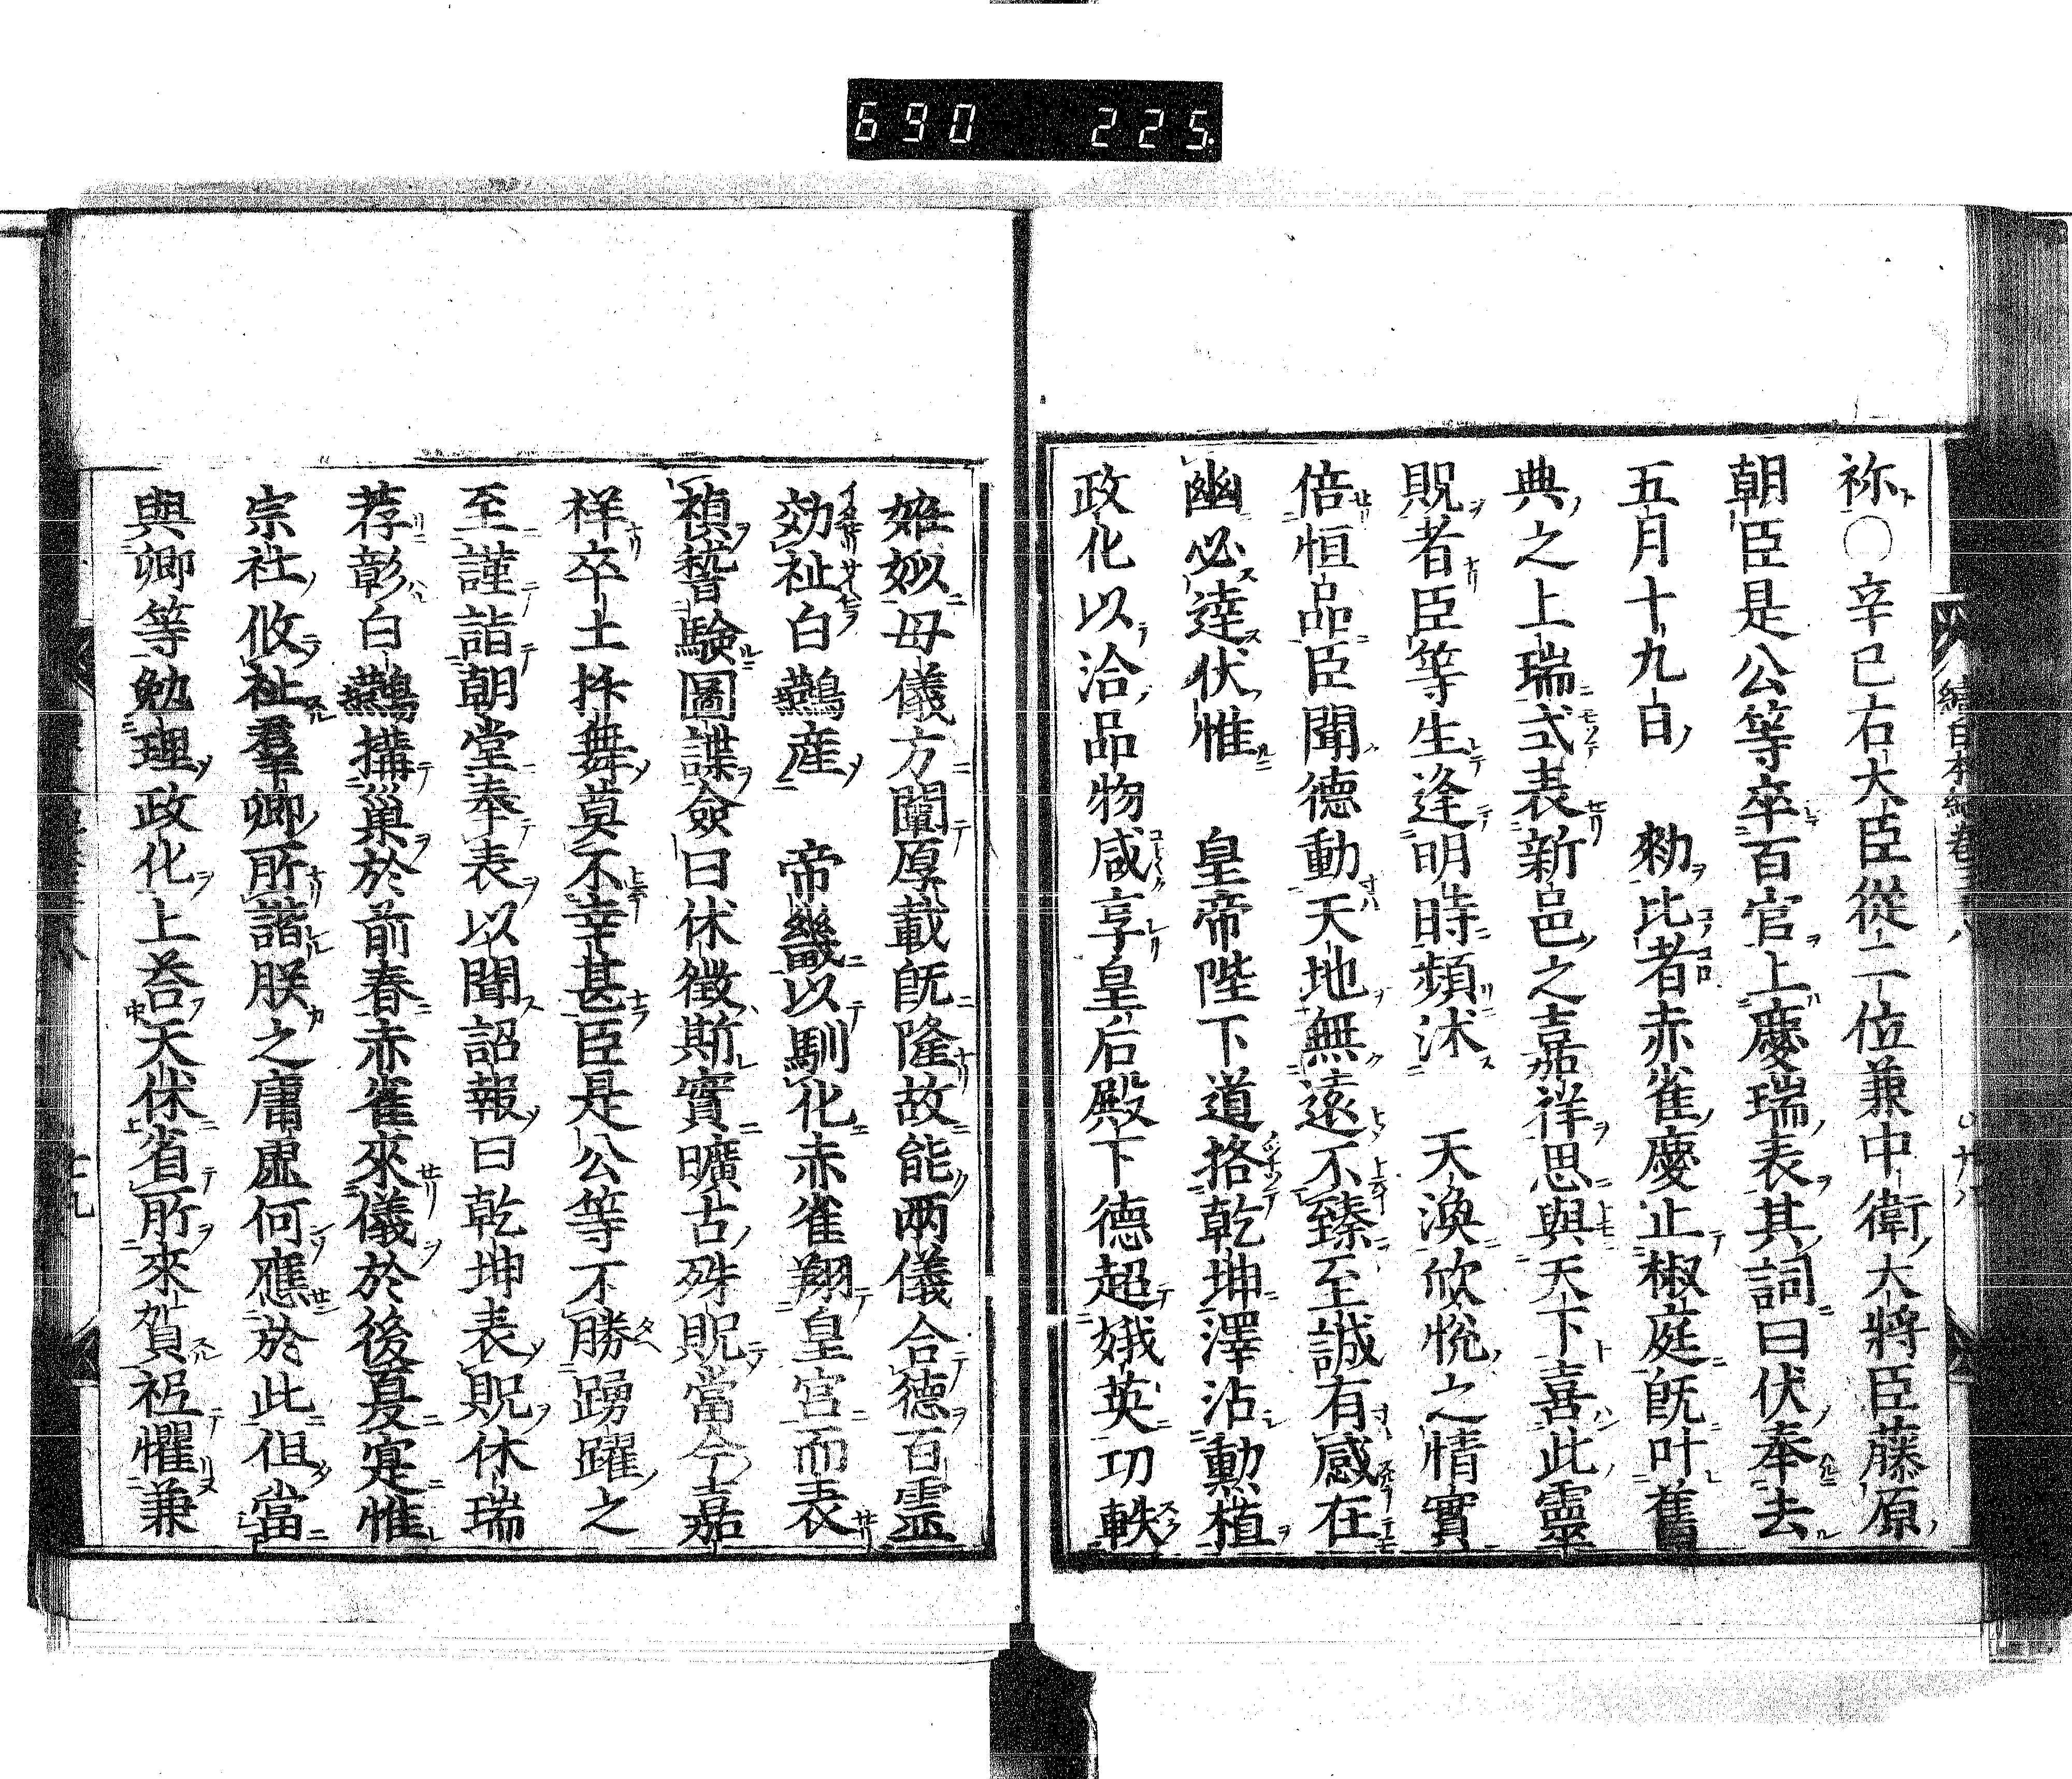 690 225
祢○辛巳右大臣從二位兼中衛大將臣藤原
朝臣是公等率百官上慶瑞表其詞曰伏奉去
五月十九日 勅比者赤雀慶止椒庭既叶舊
典之上瑞式表新邑之嘉祥思與天下喜此靈
貺者臣等生逢明時頻沐 天渙欣悅之情實
倍恒品臣聞德動天地無遠不臻至誠有感在
幽必達伏惟 皇帝陛下道格乾坤澤沾動植
政化以洽品物咸享皇后殿下德超娥英功軼
姙姒母儀方闡厚載既隆故能兩儀合德百靈
効祉白鷰產 帝畿以馴化赤雀翔皇宮而表
禎誓驗圖諜僉曰休徵斯實曠古殊貺當今嘉
祥率土抃舞莫不幸甚臣是公等不勝踴躍之
至謹詣朝堂奉表以聞詔報曰乾坤表貺休瑞
荐彰白鷰搆巢於前春赤雀來儀於後夏寔惟
宗社攸祉羣卿所諧朕之庸虛何應於此但當
與卿等勉理政化上荅天休省所來賀祗懼兼